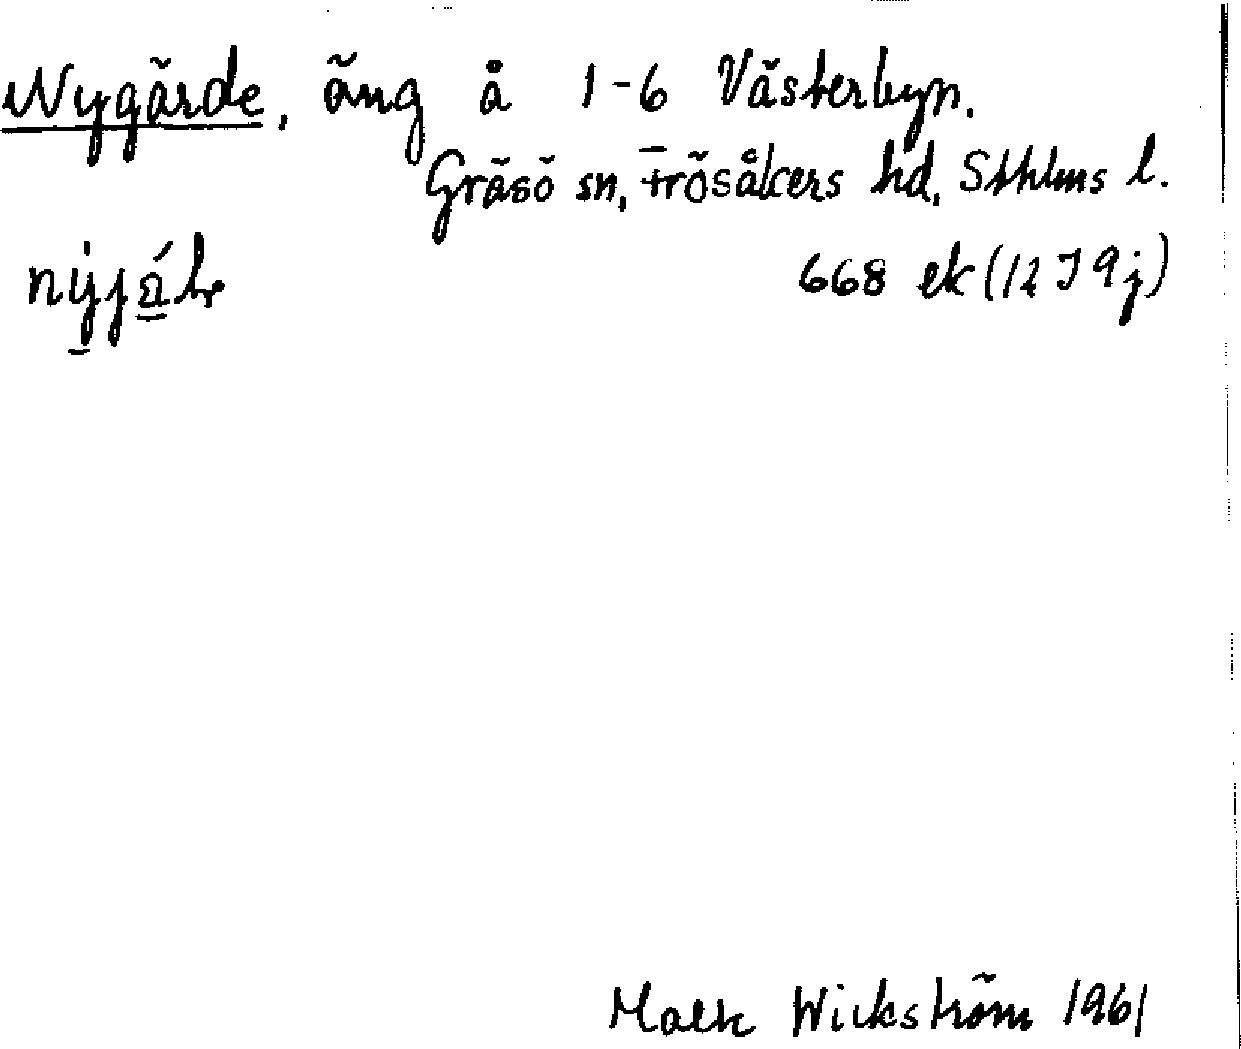 Nygärde, äng å 1-6 Västerbyn.
Gräsö sn, Frösåkers hd, Sthlms l.
668 ek (12 I 9j)
Wickström 1961